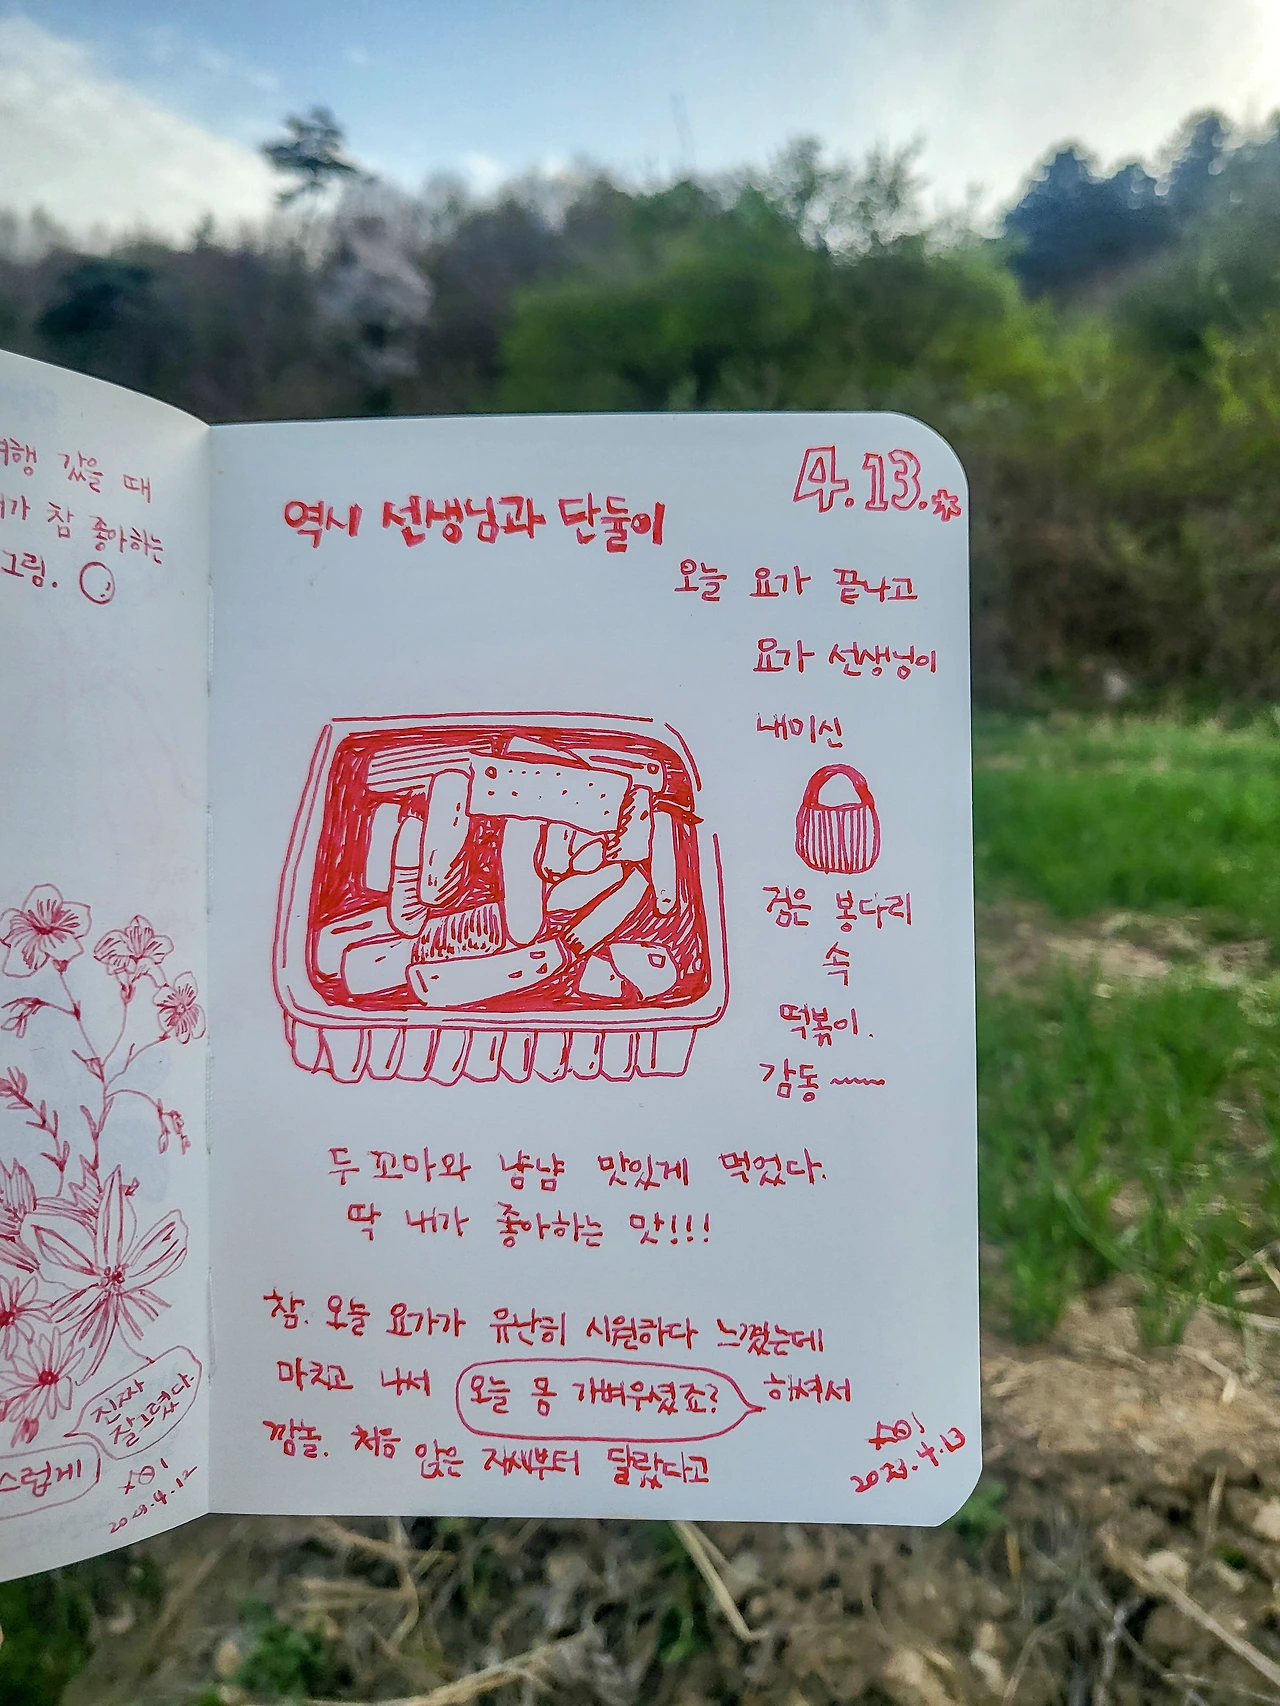 행 갔을 때
가 참 좋아하는
그림.
진짜
잘그렸다.
스럽게
4.13.
역시 선생님과 단둘이
오늘 요가 끝나고
요가 선생님이
내미신
검은 봉다리
속
떡볶이.
감동~~~
두 꼬마와 냠냠 맛있게 먹었다.
딱 내가 좋아하는 맛!!!
참. 오늘 요가가 유난히 시원하다 느꼈는데
마치고 나서 오늘 몸 가벼우셨죠? 하셔서
깜놀. 처음 앉은 자세부터 달랐다고